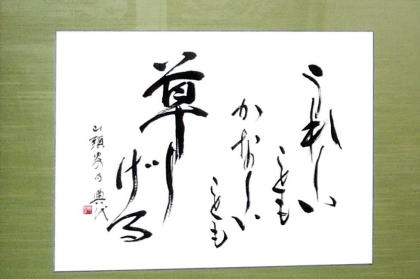 うれしい
ことも
かなしい
ことも
草しげる
山頭火の 典代